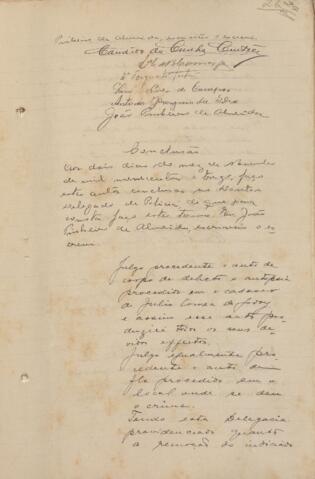 Pinheiro de Almeida, escrivão escrevi
Candido da Cunha
Luiz de Campos
Antonio Joaquim da
João Pinheiro de Almeida
Conclusão
Aos dois dias do mez de Novembro
de mil novecentos e onze, faço
estes autos conclusos ao Doutor
Delegado de Policia, do que para
constar faço este termo. Eu João
Pinheiro de Almeida, escrivão o es-
crevi.
Julgo procedente o auto de
corpo de delicto e autopsia
procedido em o cadaver
de Julio Correa de Godoy
e assim esse auto pro-
duzirá todos os seus de-
vidos effeitos.
Julgo egualmente pro-
cedente o auto de
procedido em o
local onde se deu
o crime.
Tendo esta Delegacia
providenciado quanto
a remoção do indiciado